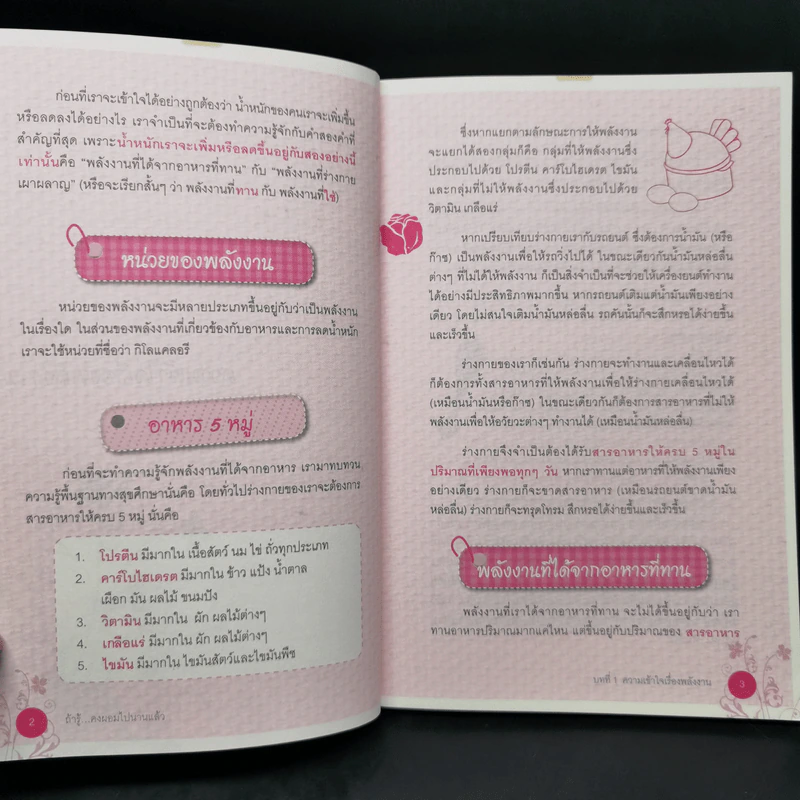 ก่อนที่เราจะเข้าใจได้อย่างถูกต้องว่า น้ำหนักของคนเราจะเพิ่มขึ้น
หรือลดลงได้อย่างไร เราจำเป็นที่จะต้องทำความรู้จักกับคำสองคำที่
สำคัญที่สุด เพราะน้ำหนักเราจะเพิ่มหรือลดขึ้นอยู่กับสองอย่างนี้
เท่านั้นคือ "พลังงานที่ได้จากอาหารที่ทาน" กับ "พลังงานที่ร่างกาย
เผาผลาญ" (หรือจะเรียกสั้นๆ ว่า พลังงานที่ทาน กับ พลังงานที่ใช้)
หน่วยของพลังงาน
หน่วยของพลังงานจะมีหลายประเภทขึ้นอยู่กับว่าเป็นพลังงาน
ในเรื่องใด ในส่วนของพลังงานที่เกี่ยวข้องกับอาหารและการลดน้ำหนัก
เราจะใช้หน่วยที่ชื่อว่า กิโลแคลอรี
อาหาร 5 หมู่
ก่อนที่จะทำความรู้จักพลังงานที่ได้จากอาหาร เรามาทบทวน
ความรู้พื้นฐานทางสุขศึกษานั่นคือ โดยทั่วไปร่างกายของเราจะต้องการ
สารอาหารให้ครบ 5 หมู่ นั่นคือ
1. โปรตีน มีมากใน เนื้อสัตว์ นม ไข่ ถั่วทุกประเภท
2. คาร์โบไฮเดรต มีมากใน ข้าว แป้ง น้ำตาล
เผือก มัน ผลไม้ ขนมปัง
3. วิตามิน มีมากใน ผัก ผลไม้ต่างๆ
4. เกลือแร่ มีมากใน ผัก ผลไม้ต่างๆ
5. ไขมัน มีมากใน ไขมันสัตว์และไขมันพืช
2 ถ้ารู้ ...คงผอมไปนานแล้ว
ซึ่งหากแยกตามลักษณะการให้พลังงาน
จะแยกได้สองกลุ่มก็คือ กลุ่มที่ให้พลังงานซึ่ง
ประกอบไปด้วย โปรตีน คาร์โบไฮเดรต ไขมัน
และกลุ่มที่ไม่ให้พลังงานซึ่งประกอบไปด้วย
วิตามิน เกลือแร่
หากเปรียบเทียบร่างกายเรากับรถยนต์ ซึ่งต้องการน้ำมัน (หรือ
ก๊าซ) เป็นพลังงานเพื่อให้รถวิ่งไปได้ ในขณะเดียวกันน้ำมันหล่อลื่น
ต่างๆ ที่ไม่ได้ให้พลังงาน ก็เป็นสิ่งจำเป็นที่จะช่วยให้เครื่องยนต์ทำงาน
ได้อย่างมีประสิทธิภาพมากขึ้น หากรถยนต์เติมแต่น้ำมันเพียงอย่าง
เดียว โดยไม่สนใจเติมน้ำมันหล่อลื่น รถคันนั้นก็จะสึกหรอได้ง่ายขึ้น
และเร็วขึ้น
ร่างกายของเราก็เช่นกัน ร่างกายจะทำงานและเคลื่อนไหวได้
ก็ต้องการทั้งสารอาหารที่ให้พลังงานเพื่อให้ร่างกายเคลื่อนไหวได้
(เหมือนน้ำมันหรือก๊าซ) ในขณะเดียวกันก็ต้องการสารอาหารที่ไม่ให้
พลังงานเพื่อให้อวัยวะต่างๆ ทำงานได้ (เหมือนน้ำมันหล่อลื่น)
ร่างกายจึงจำเป็นต้องได้รับสารอาหารให้ครบ 5 หมู่ใน
ปริมาณที่เพียงพอทุกๆ วัน หากเราทานแต่อาหารที่ให้พลังงานเพียง
อย่างเดียว ร่างกายก็จะขาดสารอาหาร (เหมือนรถยนต์ขาดน้ำมัน
หล่อลื่น) ร่างกายก็จะทรุดโทรม สึกหรอได้ง่ายขึ้นและเร็วขึ้น
พลังงานที่ได้จากอาหารที่ทาน
พลังงานที่เราได้จากอาหารที่ทาน จะไม่ได้ขึ้นอยู่กับว่า เรา
ทานอาหารปริมาณมากแค่ไหน แต่ขึ้นอยู่กับปริมาณของ สารอาหาร
บทที่ 1 ความเข้าใจเรื่องพลังงาน 3